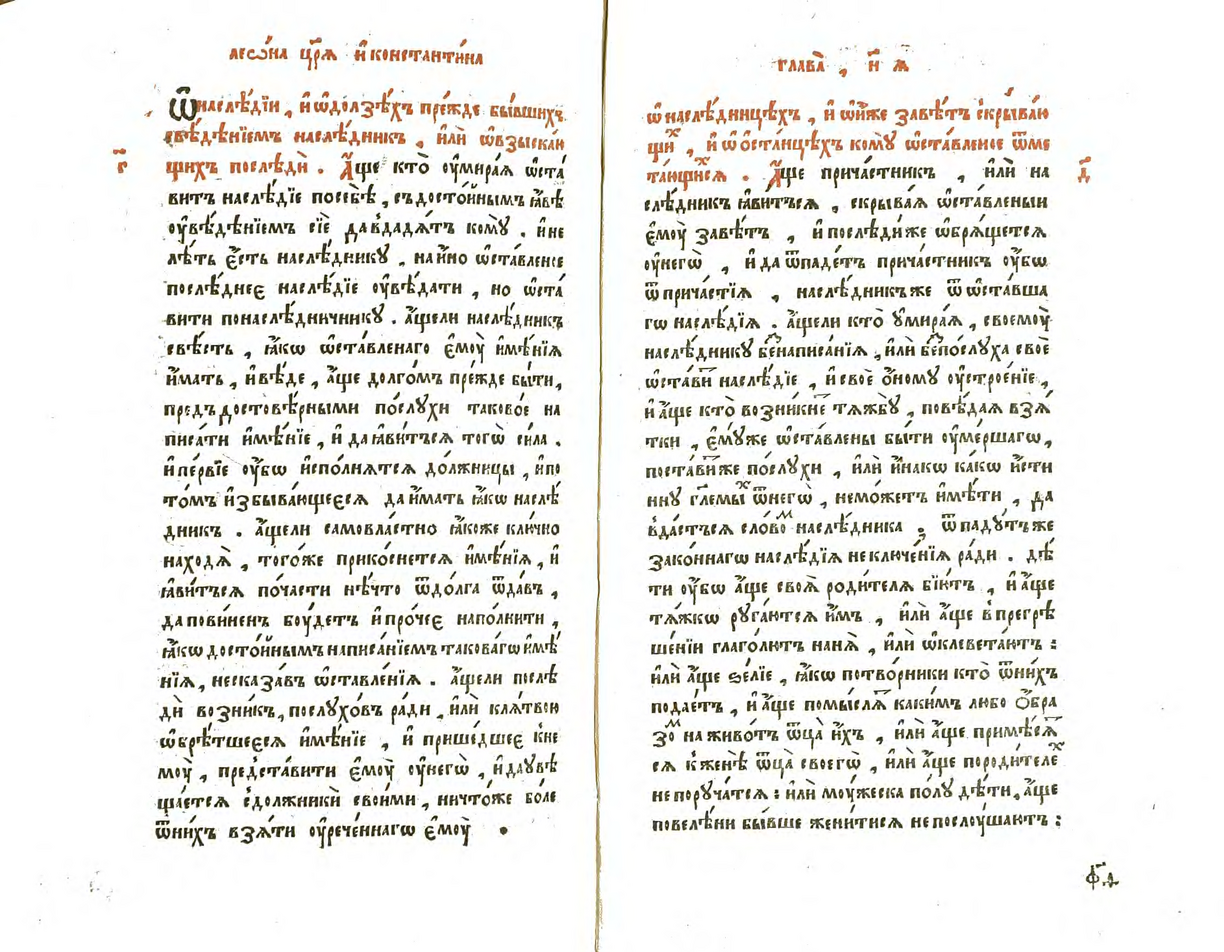 леѡ́на цр҃ѧ̀ и҆ константи́на
Ѡ҆ наслѣ́дїи , и҆ ѡ҆ долзѣ́хъ пре́жде бы́вшихъ
свѣ́дѣ́нїемъ наслѣ́дникъ , и҆лѝ ѡ҆ взыскаю́
г҃
щихъ послѣдѝ . А҆́ще кто̀ ᲂу҆мира́ѧ ѡ҆ста́
витъ наслѣ́дїе посебѣ̀ , съ досто́йнымъ ꙗ҆́вѣ
ᲂу҆вѣ́дѣ́нїемъ сїѐ да вдадѧ́тъ комꙋ̀ . и҆ не
лѣ́ть є҆́сть наслѣ́дникꙋ , на и҆́но ѡ҆ста́вленое
послѣ́днее наслѣ́дїе ᲂу҆вѣ́дати , но ѡ҆ста́
вити понаслѣ́дничникꙋ . а҆́щели наслѣ́дникъ
свѣ́сть , ꙗ҆́кѡ ѡ҆ста́вленаго є҆моꙋ̀ и҆мѣ́нїѧ
и҆́мать , и҆ вѣ́де , а҆́ще долго́мъ пре́жде бы́ти ,
предъ достовѣ́рными по́слꙋхи таково́е на
писа́ти и҆мѣ́нїе , и҆ да ꙗ҆ви́тьсѧ тогѡ̀ си́ла .
и҆ пе́рвїе ᲂу҆́бѡ и҆спо́лнѧтсѧ до́лжницы , и҆ по
то́мъ и҆збыва́ющеесѧ да и҆́мать ꙗ҆́кѡ наслѣ́
дникъ . а҆́щели самовла́стно ꙗ҆́коже клю́чно
находѧ̀ , того́же прико́снетсѧ и҆мѣ́нїѧ , и҆
ꙗ҆ви́тьсѧ по́части нѣ́что ѿ до́лга ѿда́въ ,
да пови́ненъ боꙋ́детъ и҆ про́чее напо́лнити ,
ꙗ҆́кѡ досто́йнымъ написа́нїемъ такова́гѡ и҆мѣ́
нїѧ , несказа́въ ѡ҆ставле́нїѧ . а҆́щели послѣ
дѝ возни́къ , послꙋхо́въ ра́ди , и҆лѝ клѧ́твою
ѡ҆брѣ́тшеесѧ и҆мѣ́нїе , и҆ прише́дшее к не
моꙋ̀ , предста́вити є҆моꙋ̀ ᲂу҆ негѡ̀ , и҆ да ᲂу҆вѣ
ща́етсѧ с должникѝ свои́ми , ничто́же бо́ле
ѿ ни́хъ взѧ́ти ᲂу҆рече́ннагѡ є҆моꙋ̀ .
глава̀ , н҃ и҆ а҃
ѡ҆ наслѣ́дницѣхъ , и҆ ѡ҆ и҆́же завѣ́тъ скрыва́ю
щиⷯ , и҆ ѡ҆ ѡ҆ста́нцѣхъ комꙋ̀ ѡ҆ста́вленое ѿме
та́ющиⷯсѧ . А҆́ще прича́стникъ , и҆лѝ на
д҃
слѣ́дникъ ꙗ҆ви́тьсѧ , скрыва́ѧ ѡ҆ста́вленыи
є҆моꙋ̀ завѣ́тъ , и҆ послѣди́же ѡ҆брѧ́щетсѧ
ᲂу҆ негѡ̀ , и҆ да ѿпаде́тъ прича́стникъ ᲂу҆́бѡ
ѿ прича́стїѧ , наслѣ́дникъже ѿ ѡ҆ста́вша
гѡ наслѣ́дїѧ . а҆́щели кто̀ ᲂу҆мира́ѧ , своемоꙋ̀
наслѣ́дникꙋ беⷥ написа́нїѧ , и҆лѝ беⷥ по́слꙋха своѐ
ѡ҆ста́виⷮ наслѣ́дїе , и҆ своѐ ѻ҆́номꙋ ᲂу҆строе́нїе ,
и҆ а҆́ще кто̀ возни́кнеⷮ тѧ́жбꙋ , повѣ́даѧ взѧ́
тки , є҆мꙋ́же ѡ҆ста́влены бы́ти ᲂу҆ме́ршагѡ ,
поста́виⷮже по́слꙋхи , и҆лѝ и҆́накѡ ка́кѡ и҆́сти
ннꙋ гл҃емыⷯ ѿ негѡ̀ , немо́жетъ и҆мѣ́ти , да
вда́стьсѧ сло́воⷨ наслѣ́дника , ѿпадꙋ́тъже
зако́ннагѡ наслѣ́дїѧ неключе́нїѧ ра́ди . дѣ́
ти ᲂу҆́бѡ а҆́ще своѧ̀ роди́телѧ бїю́тъ , и҆ а҆́ще
тѧ́жкѡ рꙋга́ютсѧ и҆̀мъ , и҆лѝ а҆́ще в прегрѣ
ше́нїи глаго́лютъ нанѧ̀ , и҆лѝ ѡ҆клевета́ютъ :
и҆лѝ а҆́ще ѕе́лїе , ꙗ҆́кѡ потво́рники кто̀ ѿ ни́хъ
подае́тъ , и҆ а҆́ще помы́слѧⷮ каки́мъ любо ѻ҆́бра
зоⷨ на живо́тъ ѿца̀ и҆́хъ , и҆лѝ а҆́ще примѣ́сѧⷮ
сѧ к женѣ̀ ѿца̀ своегѡ̀ , и҆лѝ а҆́ще породи́телеⷯ
не порꙋча́тсѧ : и҆лѝ моꙋ́жеска по́лꙋ дѣ́ти , а҆́ще
повеле́ни бы́вше жени́тисѧ не послоꙋ́шаютъ :
ф҃д